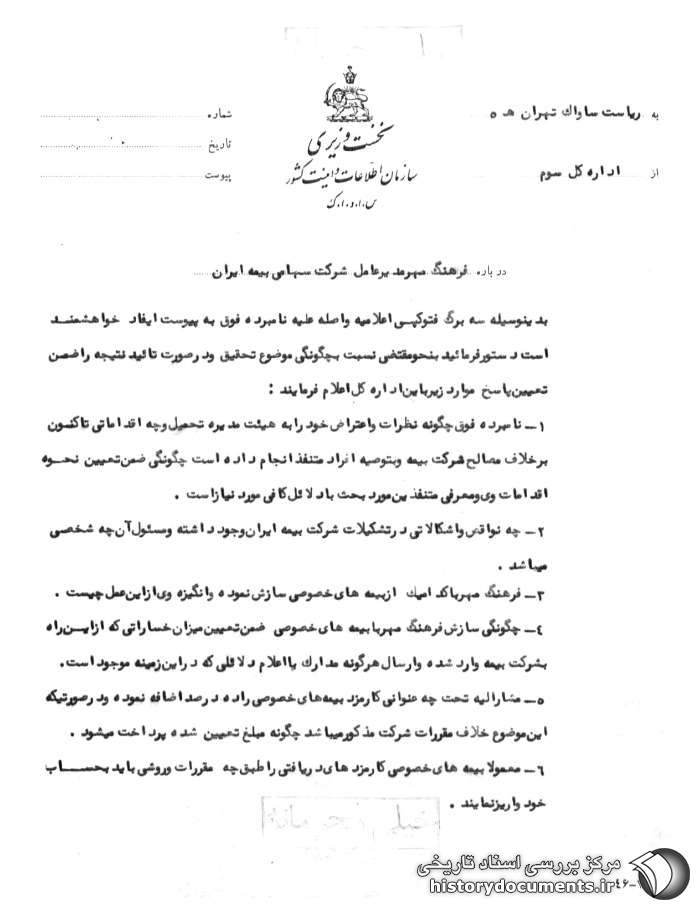 به ریاست ساواک تهران هـ ۵
نخست وزیری
شماره
تاریخ
سازمان اطلاعات و امنیت کشور
از اداره کل سوم
پیوست
س.ا.و.ا.ک
درباره فرهنگ مهر مدیرعامل شرکت سهامی بیمه ایران
بدینوسیله سه برگ فتوکپی اعلامیه واصله علیه نامبرده فوق به پیوست ایفاد خواهشمند
است دستور فرمائید بنحو مقتضی نسبت بچگونگی موضوع تحقیق و در صورت تائید نتیجه را ضمن
تعیین پاسخ موارد زیر باین اداره کل اعلام فرمایند :
۱- نامبرده فوق چگونه نظرات و اعتراض خود را به هیئت مدیره تحمیل و چه اقداماتی تاکنون
برخلاف مصالح شرکت بیمه و بتوصیه افراد متنفذ انجام داده است چگونگی ضمن تعیین نحوه
اقدامات وی و معرفی متنفذین مورد بحث با دلائل کافی مورد نیاز است .
۲- چه نواقص و اشکالاتی در تشکیلات شرکت بیمه ایران وجود داشته و مسئول آن چه شخصی
میباشد .
۳- فرهنگ مهر با کدامیک از بیمه های خصوصی سازش نموده و انگیزه وی از این عمل چیست .
۴- چگونگی سازش فرهنگ مهر با بیمه های خصوصی ضمن تعیین میزان خساراتی که از این راه
بشرکت بیمه وارد شده و ارسال هرگونه مدارک یا اعلام دلائلی که در این زمینه موجود است.
۵- مشارالیه تحت چه عنوانی کارمزد بیمه های خصوصی را ده درصد اضافه نموده و در صورتیکه
این موضوع خلاف مقررات شرکت مذکور میباشد چگونه مبلغ تعیین شده پرداخت میشود .
۶- معمولا بیمه های خصوصی کارمزد های دریافتی را طبق چه مقررات و روشی باید بحساب
خود واریز نمایند .
مرکز بررسی اسناد تاریخی
historydocuments.ir